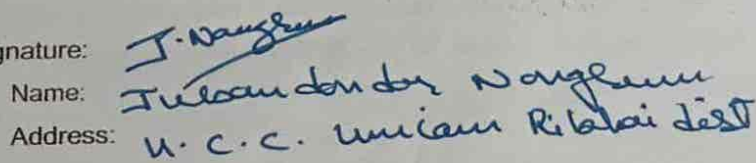 gnature: J. Nongrum
Name: Nongrum
Address: U. C. C. Umiam Ribhoi dist